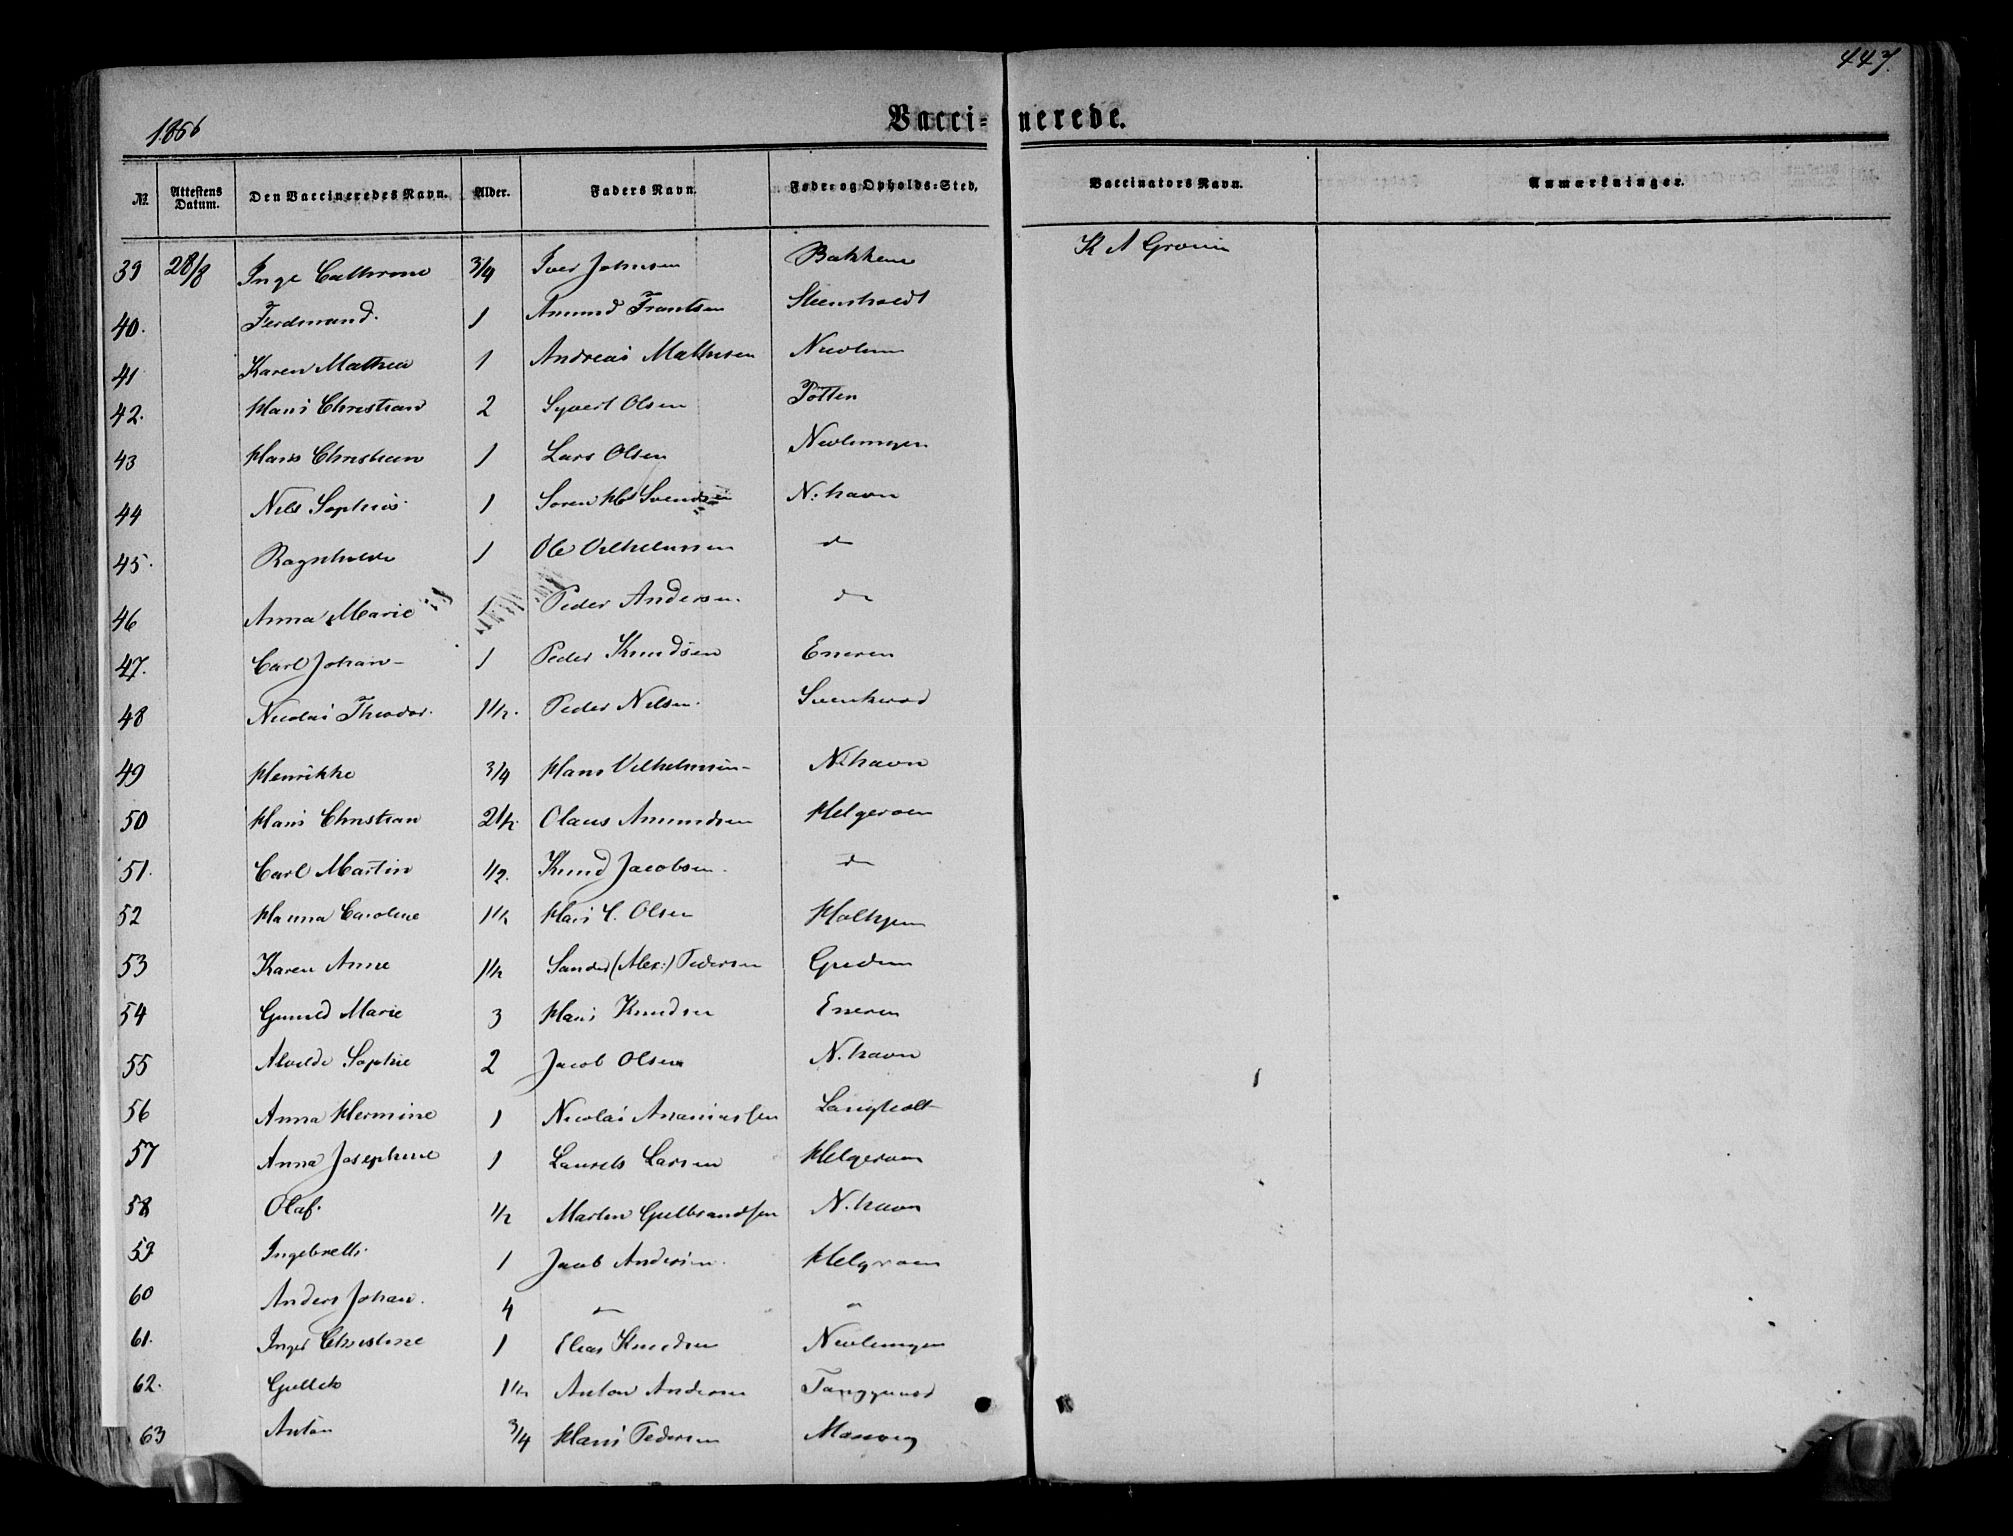 447.
1866
Vacci-nerede.
No. Attestens Datum. Den Vaccineredes Navn. Alder. Faders Navn. Føde- og Opholds-Sted. Vaccinators Navn. Anmærkninger.
39 28/8 Inge Cathrine 3/4 Iver Johnsen Bakkene K A Grønn
40. Ferdinand. 1 Amund Frantsen Steensholdt
41 Karen Mathea 1 Andreas Mathisen
42. Hans Christian 2 Syvert Olsen Totten
43 Hans Christian 1 Lars Olsen Nevlungen
44 Nils Sophus 1 Søren Svendsen N: havn
45. Ragnhilde 1 Ole Vilhelmsen do
46 Anna Marie 1 Peder Andersen. do
47. Carl Johan 1 Peder Knudsen Eneren
48 Nicolai Theodor. 1 1/2. Peder Nilsen.
49 Henrikke 3/4 Hans Vilhelmsen N. havn
50 Hans Christian 2 1/2. Olaus Amundsen Helgeroen
51. Carl Martin 1/2. Knud Jacobsen. do
52 Hanna Caroline 1 1/2 Hans C. Olsen
53 Karen Anne 1 1/2 Sander (Alex:) Pedersen
54 Gunild Marie 3 Hans Knudsen Eneren
55 Alvilde Sophie 2 Jacob Olsen N. havn
56 Anna Hermine 1 Nicolai Ananiassen Langholt
57 Anna Josephine 1 Laurets Larsen Helgeroen
58 Olaf. 1/2 Martin Gulbrandsen N. havn
59 Ingebrett. 1 Jacob Andersen. Helgeroen
60 Anders Johan. 4
61. Inger Christine 1 Elias Knudsen Nevlungen
62. Gullek 1 1/2 Anton Andersen
63 Anton 3/4 Hans Pedersen